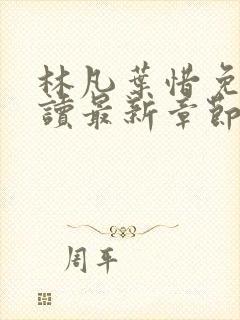 林凡葉惜免
讀最新章節
周平